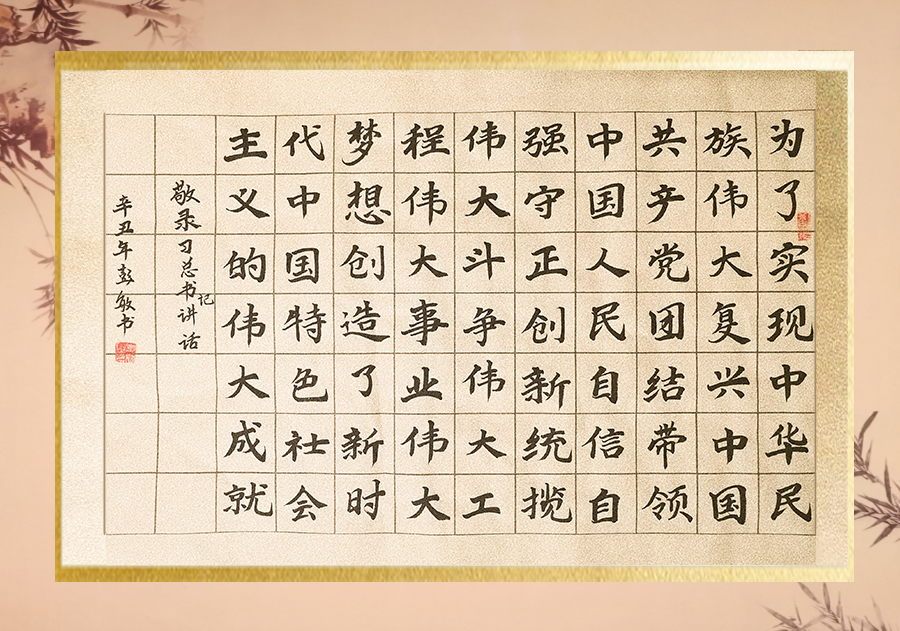 为了实现中华民
族伟大复兴中国
共产党团结带领
中国人民自信自
强守正创新统揽
伟大斗争伟大工
程伟大事业伟大
梦想创造了新时
代中国特色社会
主义的伟大成就
敬录习总书记讲话
辛丑年彭敏书